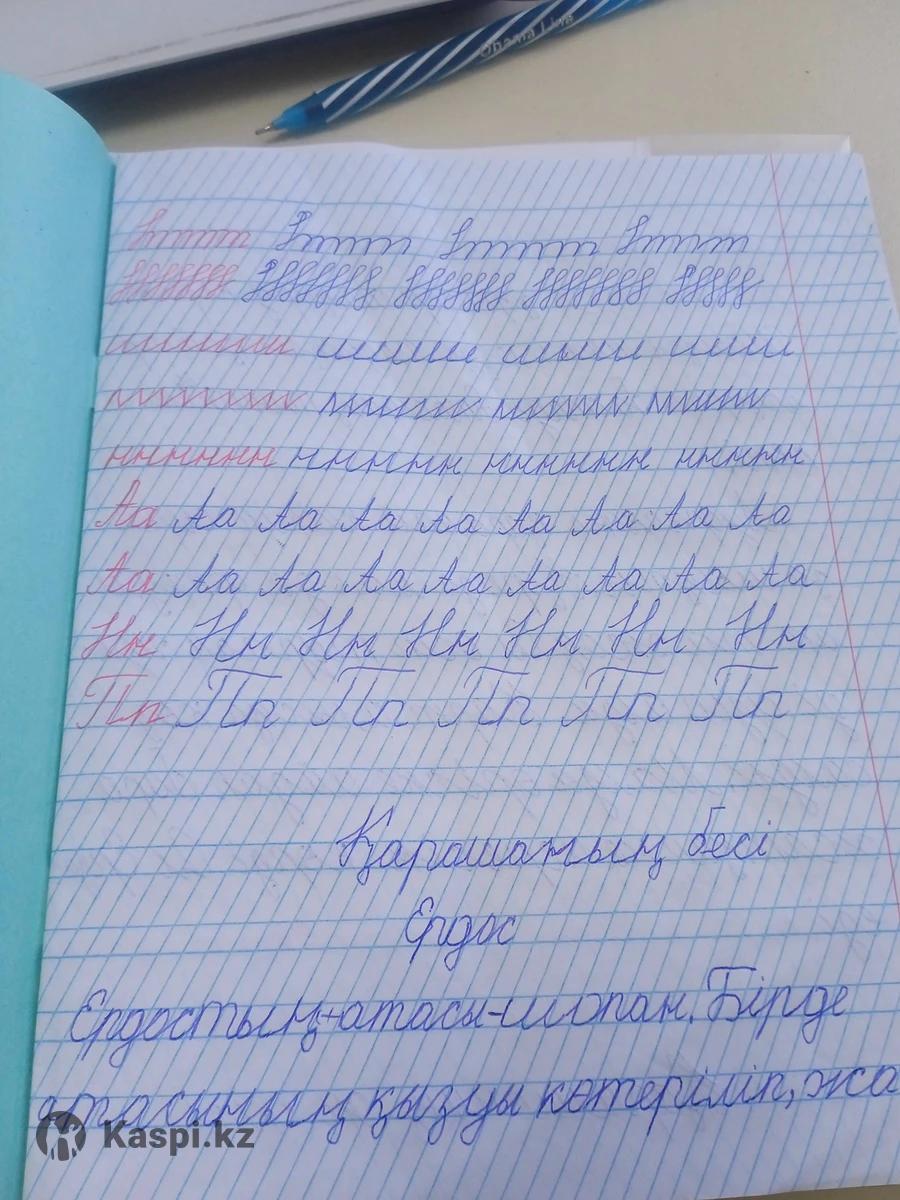 Obama Line
Аа Аа Аа Аа Аа Аа Аа Аа Аа
Аа Аа Аа Аа Аа Аа Аа Аа Аа
Нн Нн Нн Нн Нн Нн Нн
Пп Пп Пп Пп Пп Пп
Қарашаның бесі
Ердос
Ердостың-атасы-шопан. Бірде
атасының қызуы көтеріліп, жа
Kaspi.kz